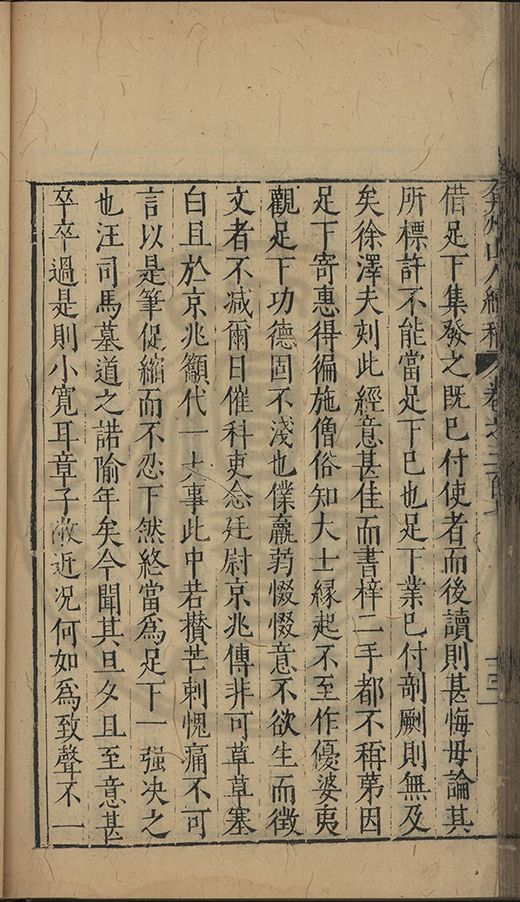 弇州山人續稿 卷之二百七 十三
借足下集發之既已付使者而後讀則甚悔毋論其
所標許不能當足下已也足下業已付剞劂則無及
矣徐澤夫刻此經意甚佳而書梓二手都不稱苐因
足下寄惠得徧施僧俗知大士緣起不至作優婆夷
觀足下功德固不淺也僕羸弱惙惙意不欲生而徵
文者不减爾日催科吏念廷尉京兆傳非可草草塞
白且於京兆籲代一大事此中若攢芒刺愧痛不可
言以是筆促縮而不忍下然終當爲足下一强决之
也汪司馬墓道之諾隃年矣今聞其旦夕且至意甚
卒卒過是則小寬耳章子敬近况何如爲致聲不一